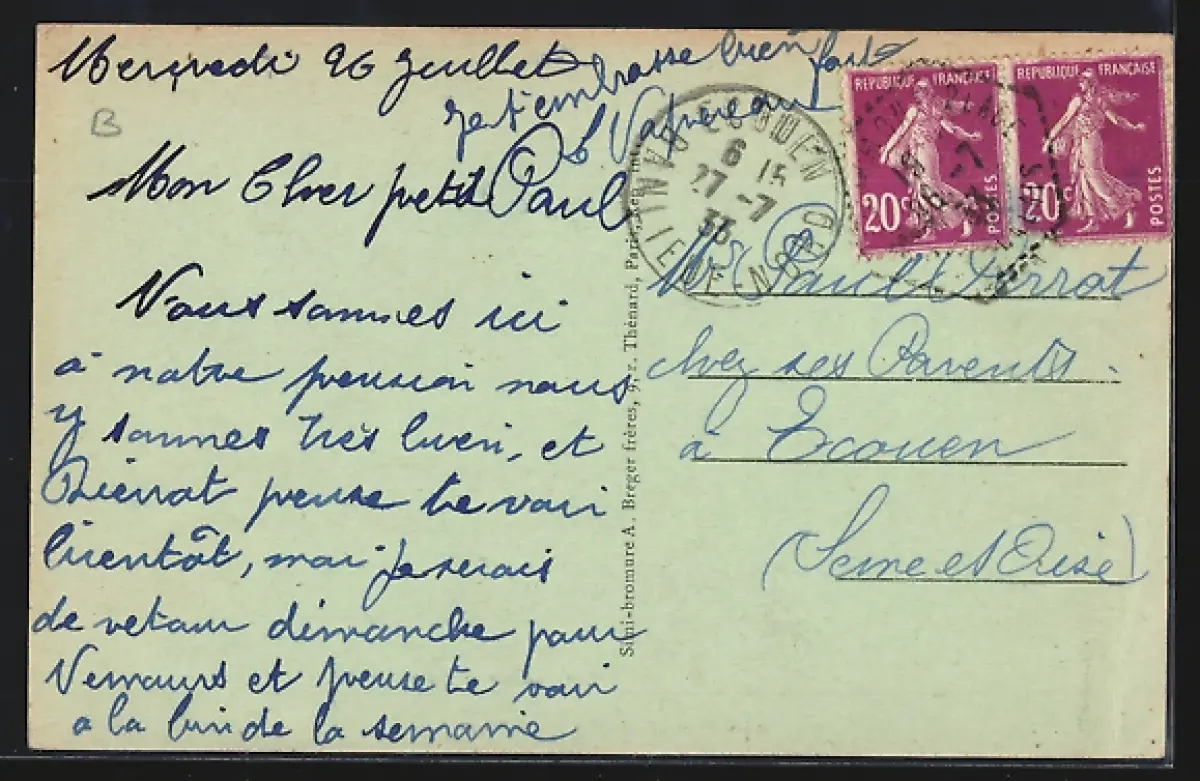 Mercredi 26 Juillet
je t'embrasse bien fort
B
Mon Cher petit Paul
Nous sommes ici
à notre pension nous
y sommes très bien, et
Pierrot pense te voir
bientôt, moi je serais
de retour dimanche pour
Nemours et pense te voir
a la fin de la semaine
Simi-bromure A. Breger frères, 9, r. Thénard, Paris
ECOUEN
6 15
27 -7
33
SEINE-ET-OISE
REPUBLIQUE FRANÇAISE
20c
POSTES
REPUBLIQUE FRANÇAISE
20c
POSTES
Mr Paul Perrot
chez ses Parents.
à Ecouen
(Seine et Oise)